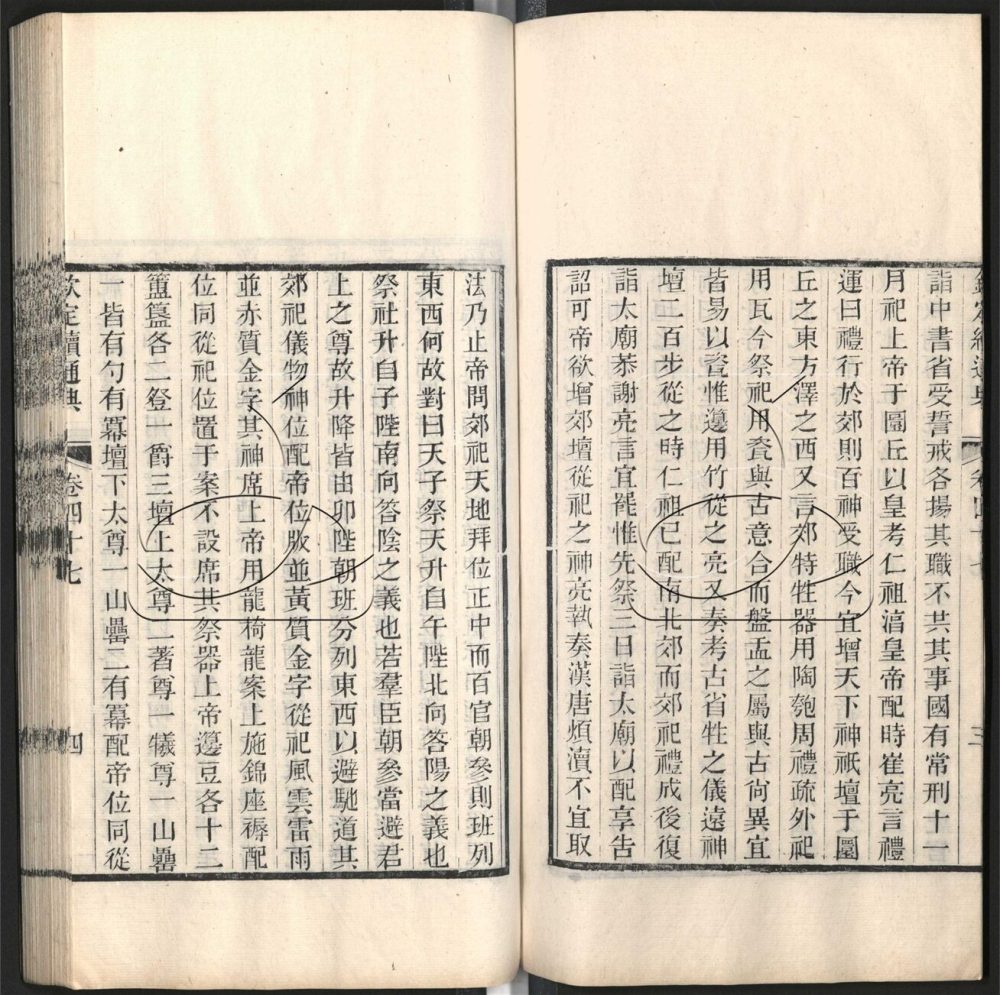 欽定續通典 卷四十七 三
詣中書省受誓戒各揚其職不共其事國有常刑十一
月祀上帝于圜丘以皇考仁祖淳皇帝配時崔亮言禮
運曰禮行於郊則百神受職今宜增天下神祇壇于圜
丘之東方澤之西又言郊特牲器用陶匏周禮疏外祀
用瓦今祭祀用瓷與古意合而盤盂之屬與古尙異宜
皆易以瓷惟籩用竹從之亮又奏考古省牲之儀遠神
壇二百步從之時仁祖已配南北郊而郊祀禮成後復
詣太廟恭謝亮言宜罷惟先祭三日詣太廟以配享告
詔可帝欲增郊壇從祀之神亮執奏漢唐煩瀆不宜取
法乃止帝問郊祀天地拜位正中而百官朝參則班列
東西何故對曰天子祭天升自午陛北向答陽之義也
祭社升自子陛南向答陰之義也若羣臣朝參當避君
上之尊故升降皆由卯陛朝班分列東西以避馳道其
郊祀儀物神位配帝位版並黃質金字從祀風雲雷雨
並赤質金字其神席上帝用龍椅龍案上施錦座褥配
位同從祀位置于案不設席其祭器上帝籩豆各十二
簠簋各二登一爵三壇上太尊二著尊一犧尊一山罍
一皆有勺有冪壇下太尊一山罍二有冪配帝位同從
欽定續通典 卷四十七 四